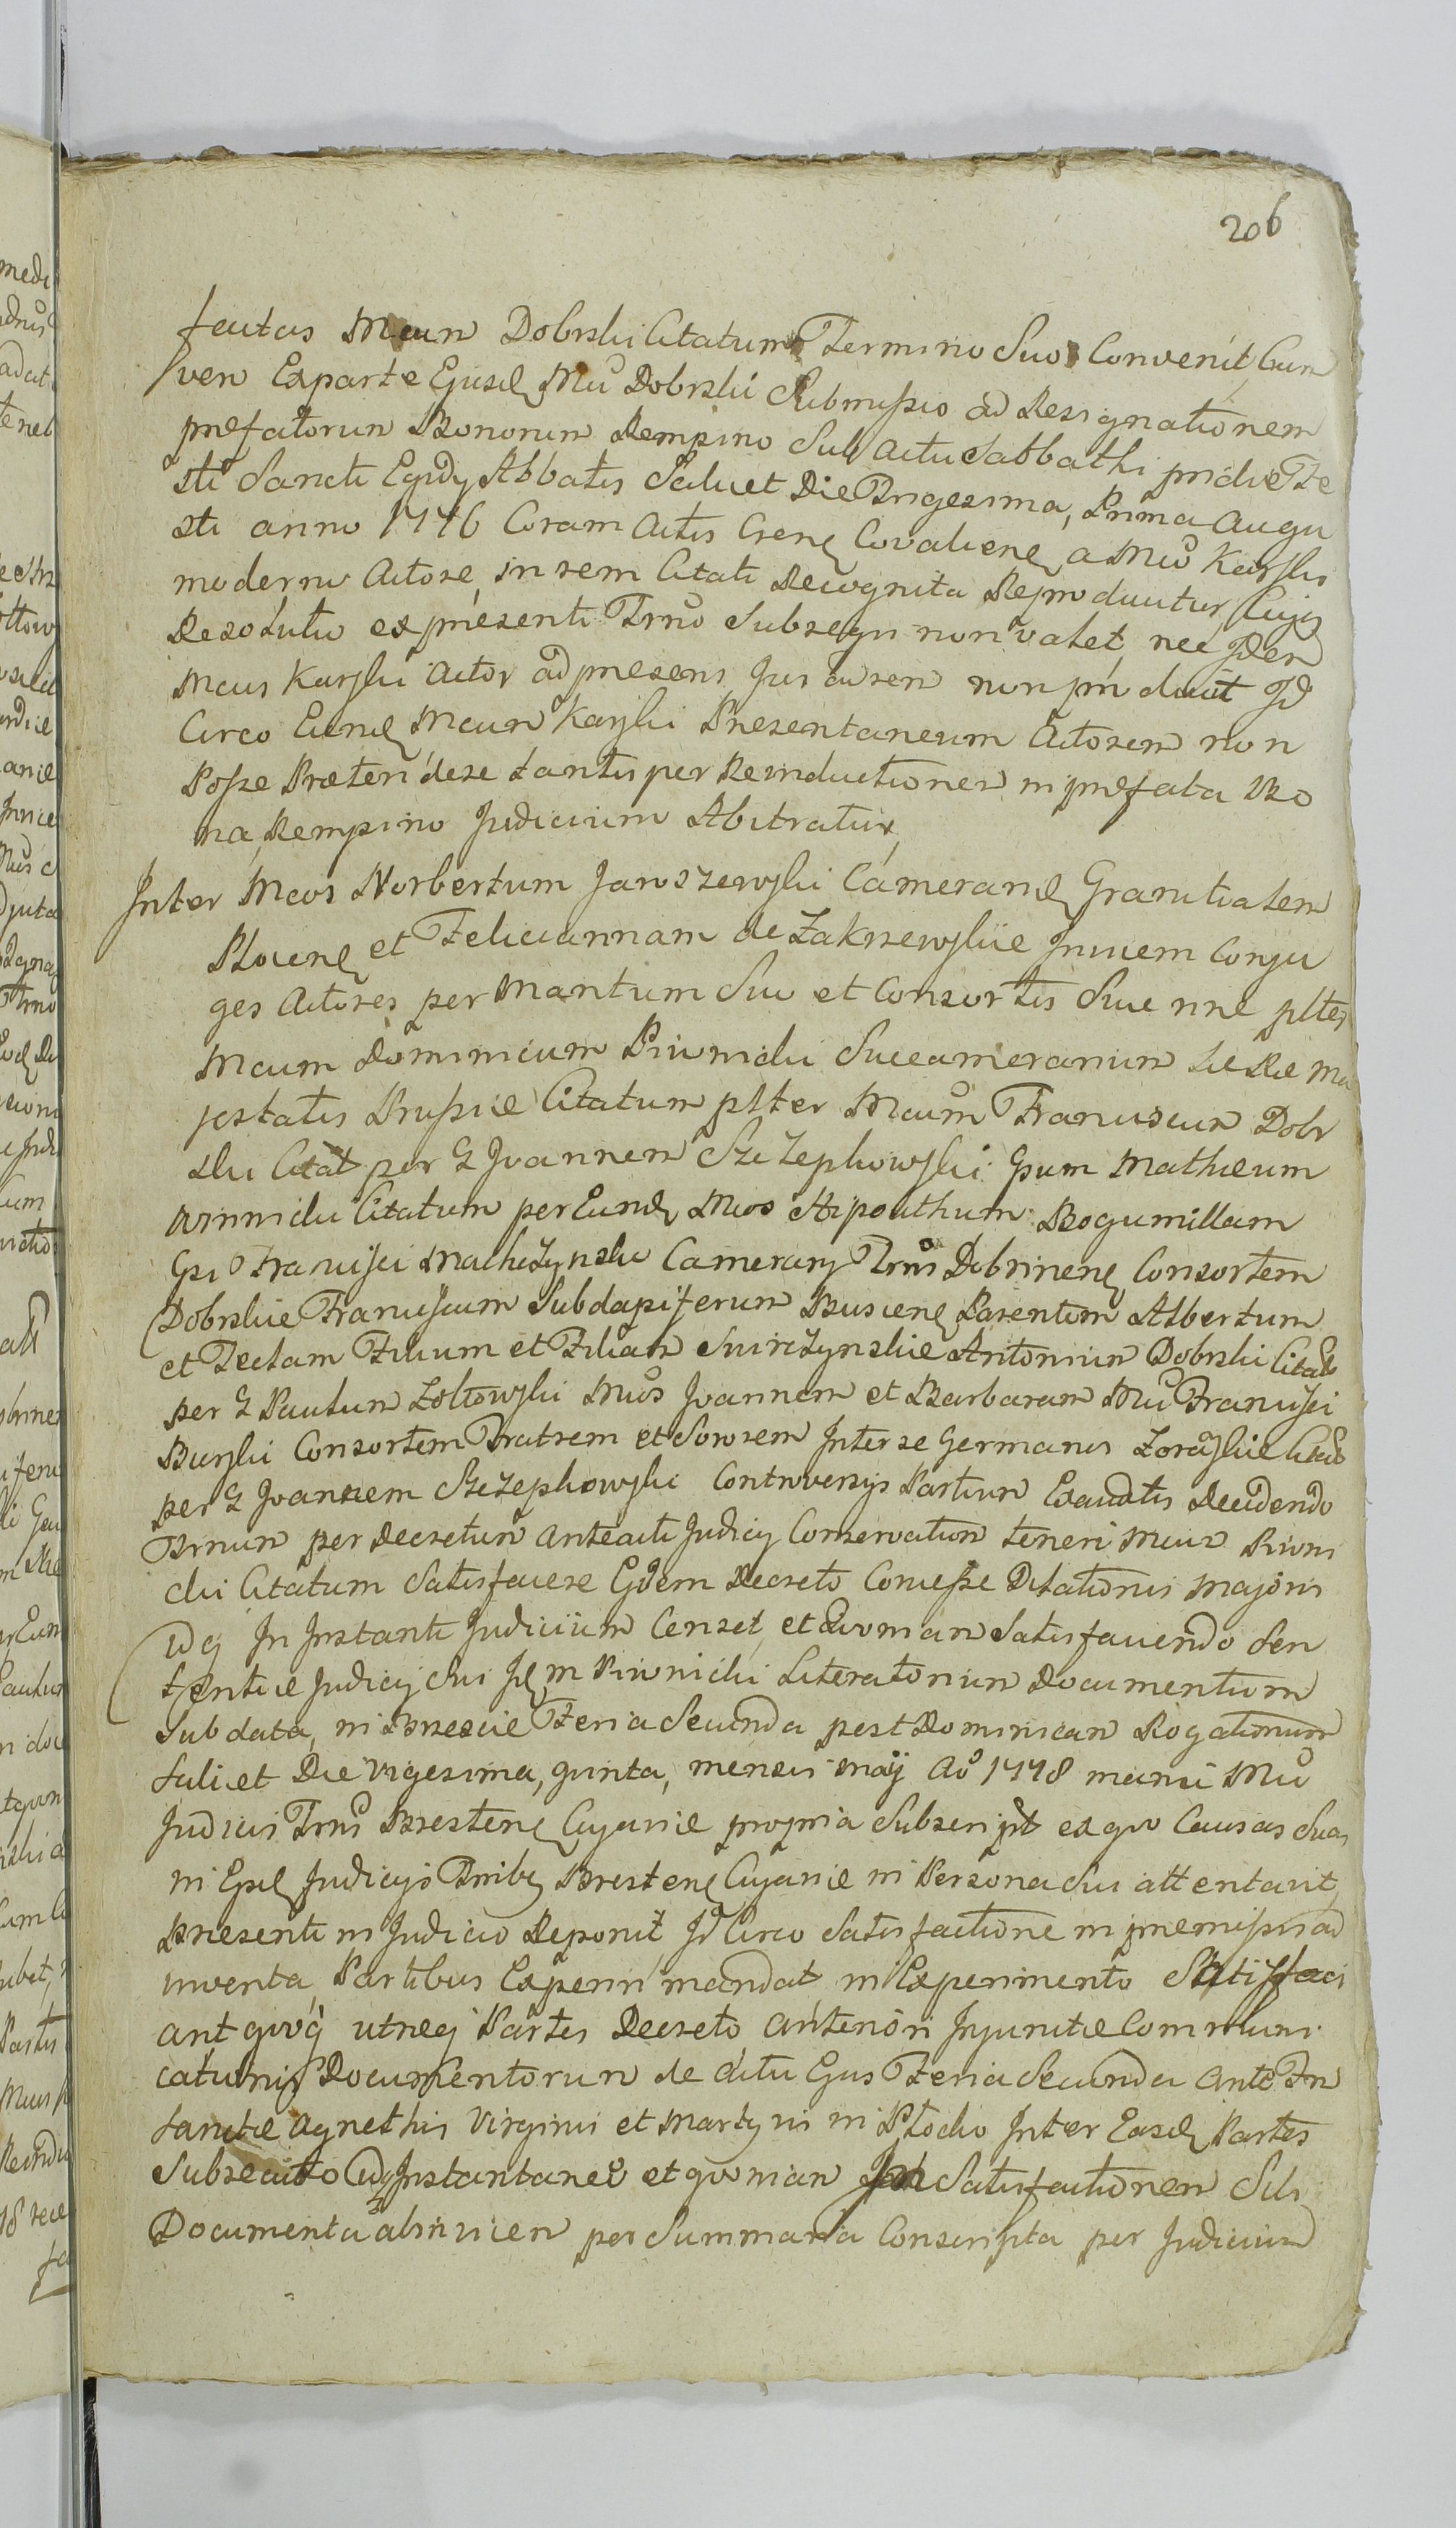 206
fectus Mcum Dobrski Citatum Termino Suo Convenit, Cum
vero Exparte Ejusd Mci Dobrski Submissio ad Resignationem
prefatorum Bonorum Rempino Sub actu Sabbathi pridie Fe
sti Sancti Egidy Abbatis Scilicet Die Trigesima, Prima Augu
sti anno 1776 Coram Actis Crens Covaliens a Mco Karski
moderno Actore, in rem Citati Recognita Reproducitur Cujq
Resolutio ex presenti Trno Subsequi non valet, nec Idem
Mcus Karski Actor ad presens Jus in rem non producit Id
Circo Eund Mcum Karski Presentaneum Actorem non
Posse Praetendere tantisper Reinductionem in prefata Bo
na, Rempino Judicium Abitratur,
Inter Mcos Norbertum Jaroszewski Cameranum Granitialem
Plocens et Feliciannam de Zakrzewskie Invicem Conju
ges Actores per Maritum Suo et Consortis Sue nne pltes
Mcum Dominicum Piwnicki Succamerarium Sae Rae Ma
jestatis Prussie Citatum plter Mcum Franciscum Dobr
ski Citat per G Joannem Szczepkowski Gsum Mathaeum
Winnicki Citatum per Eund Mcos Hipolithum Bogumillam
Gsi Francisci Makczynski Camerary Trris Dobrinens Consortem
Dobrskie Franciscum Subdapiferum Buscens Parentem Albertum
et Teclam Filium et Filiam Swirczynskie Antonium Dobrski Citatos
per G Paulum Zoltowski Mcos Joannem et Barbaram Mci Francisci
Burski Consortem Fratrem et Sororem Inter se Germanos Zorawskie Citatos
per G Joannem Szczepkowski Controversys Partium Exauditis Decidendo
Trnum per Decretum anteacti Judicy Conservatum teneri Mcum Piwni
cki Citatum Satisfacere Eidem Decreto Concesse Dilationis Majoris
idq In Instanti Judicium Censet, et Quoniam Satisfaciendo Sen
tentie Judicy Sui Id m Piwnicki Literatorium Documentum
Sub data, in Brescie Feria Secunda post Dominicam Rogationum
Scilicet Die Vigesima, quinta, mensis May Ao 1778 manu Mci
Judicis Trris Brestens Cujavie propria Subscript ex quo Causas Suas
in Eisd Judicys Trribq Brestens Cujavie in Persona Sui attentavit,
Presenti in Judicio Deponit, Id Circo Satisfactione in premissis ad
inventa, Partibus Experiri mandat, in Experimento Satisfaci
ant quoq utraeq Partes Decreto anteriori Injunctae Communi
cationis Documentorum de actu Ejus Feria Secunda ante Fm
Sanctae Agnethis Virginis et Martyris in Plocko Inter Easd Partes
Subsecuto idq Instantanee et quoniam Satisfactionem Sibi
Documenta abinvicem per Summaria Conscripta per Judicium